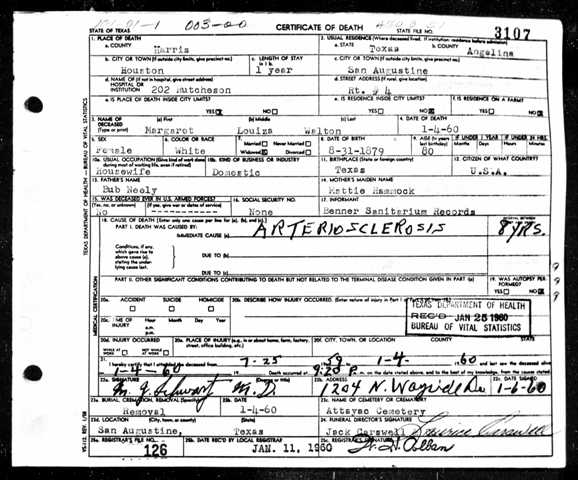 STATE OF TEXAS
003-00
CERTIFICATE OF DEATH
STATE FILE NO.
3107
1. PLACE OF DEATH
a. COUNTY Harris
2. USUAL RESIDENCE (Where deceased lived. If institution: residence before admission)
a. STATE Texas b. COUNTY Angelina
b. CITY OR TOWN (If outside city limits, give precinct no.) Houston
c. LENGTH OF STAY in 1 b. 1 year
c. CITY OR TOWN (If outside city limits, give precinct no.) San Augustine
d. NAME OF (If not in hospital, give street address) HOSPITAL OR INSTITUTION 202 Hutcheson
d. STREET ADDRESS (If rural, give location) Rt. # 4
e. IS PLACE OF DEATH INSIDE CITY LIMITS? YES NO
e. IS RESIDENCE INSIDE CITY LIMITS? YES NO
f. IS RESIDENCE ON A FARM? YES NO
3. NAME OF DECEASED (Type or print)
(a) First Margaret (b) Middle Louiza (c) Last Walton
4. DATE OF DEATH 1-4-60
5. SEX Female
6. COLOR OR RACE White
7. Married Never Married Widowed Divorced
8. DATE OF BIRTH 8-31-1879
9. AGE 80
IF UNDER 1 YEAR Months Days
IF UNDER 24 HRS. Hours Minutes
10a. USUAL OCCUPATION (Give kind of work done Housewife
10b. KIND OF BUSINESS OR INDUSTRY Domestic
11. BIRTHPLACE (State or foreign country) Texas
12. CITIZEN OF WHAT COUNTRY? U.S.A.
13. FATHER'S NAME Bub Neely
14. MOTHER'S MAIDEN NAME Mattie Hammock
15. WAS DECEASED EVER IN U.S. ARMED FORCES? (Yes, no, or unknown) (If yes, give war or dates of service) No
16. SOCIAL SECURITY NO. None
17. INFORMANT Benner Sanitarium Records
18. CAUSE OF DEATH (Enter only one cause per line for (a), (b), and (c).)
PART I. DEATH WAS CAUSED BY:
IMMEDIATE CAUSE (a) ARTERIOSCLEROSIS 8 YRS.
Conditions, if any, which gave rise to above cause (a), stating the underlying cause last.
DUE TO (b)
DUE TO (c)
PART II. OTHER SIGNIFICANT CONDITIONS CONTRIBUTING TO DEATH BUT NOT RELATED TO THE TERMINAL DISEASE CONDITION GIVEN IN PART I(a)
19. WAS AUTOPSY PERFORMED? YES NO
20a. ACCIDENT SUICIDE HOMICIDE
20b. DESCRIBE HOW INJURY OCCURRED.
TEXAS DEPARTMENT OF HEALTH
REC'D JAN 25 1960
BUREAU OF VITAL STATISTICS
20c. TIME OF INJURY Hour Month Day Year a.m. p.m.
20d. INJURY OCCURRED WHILE AT WORK NOT WHILE AT WORK
20e. PLACE OF INJURY (e.g., in or about home, farm, factory, street, office building, etc.)
20f. CITY, TOWN, OR LOCATION COUNTY STATE
21. I hereby certify that I attended the deceased from 7-25 59 1-4 60 and last saw the deceased alive
1-4-60 Death occurred at 9:20 P. m. on the date stated above, and to the best of my knowledge, from the causes stated.
22a. SIGNATURE (Degree or title) M.D.
22b. ADDRESS 1204 N. Wayside Dr.
22c. DATE SIGNED 1-6-60
23a. BURIAL, CREMATION, REMOVAL (Specify) Removal
23b. DATE 1-4-60
23c. NAME OF CEMETERY OR CREMATORY Attoyac Cemetery
23d. LOCATION (City, town, or county) (State) San Augustine, Texas
24. FUNERAL DIRECTOR'S SIGNATURE Jack Carswell
25a. REGISTRAR'S FILE NO. 126
25b. DATE REC'D BY LOCAL REGISTRAR JAN. 11, 1960
25c. REGISTRAR'S SIGNATURE
TEXAS DEPARTMENT OF HEALTH - BUREAU OF VITAL STATISTICS
MEDICAL CERTIFICATION